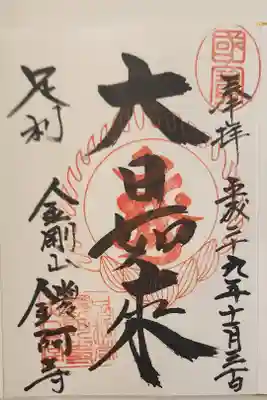 奉拝 平成二十九年十月三十日
國寶
大日如来
足利
金剛山 鑁阿寺